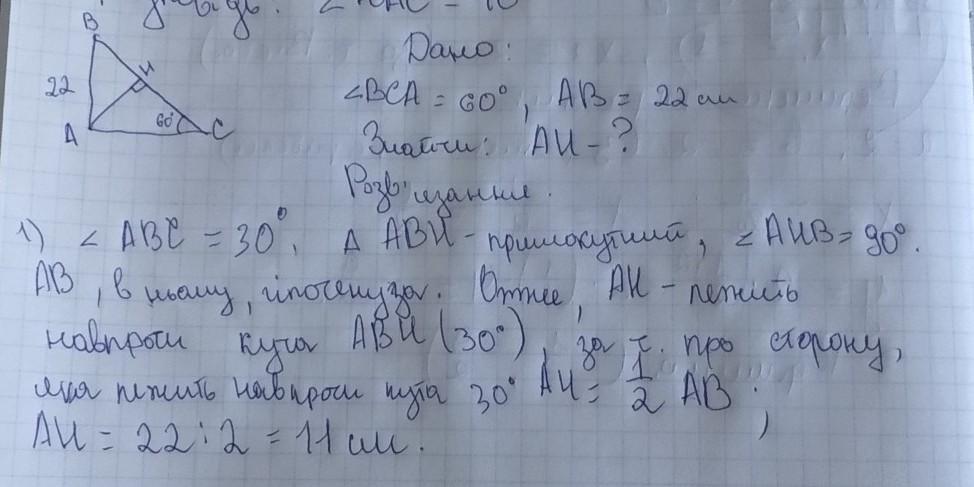 B
Дано:
22
H
∠BCA = 60°, AB = 22 см
A
60°
C
Знайти: AH - ?
Розв'язання.
1) ∠ABC = 30°, △ABH - прямокутний, ∠AHB = 90°.
AB, в ньому, гіпотенуза. Отже, AH - лежить
навпроти кута ABH (30°), за т. про сторону,
яка лежить навпроти кута 30° AH = 1/2 AB;
AH = 22 : 2 = 11 см.